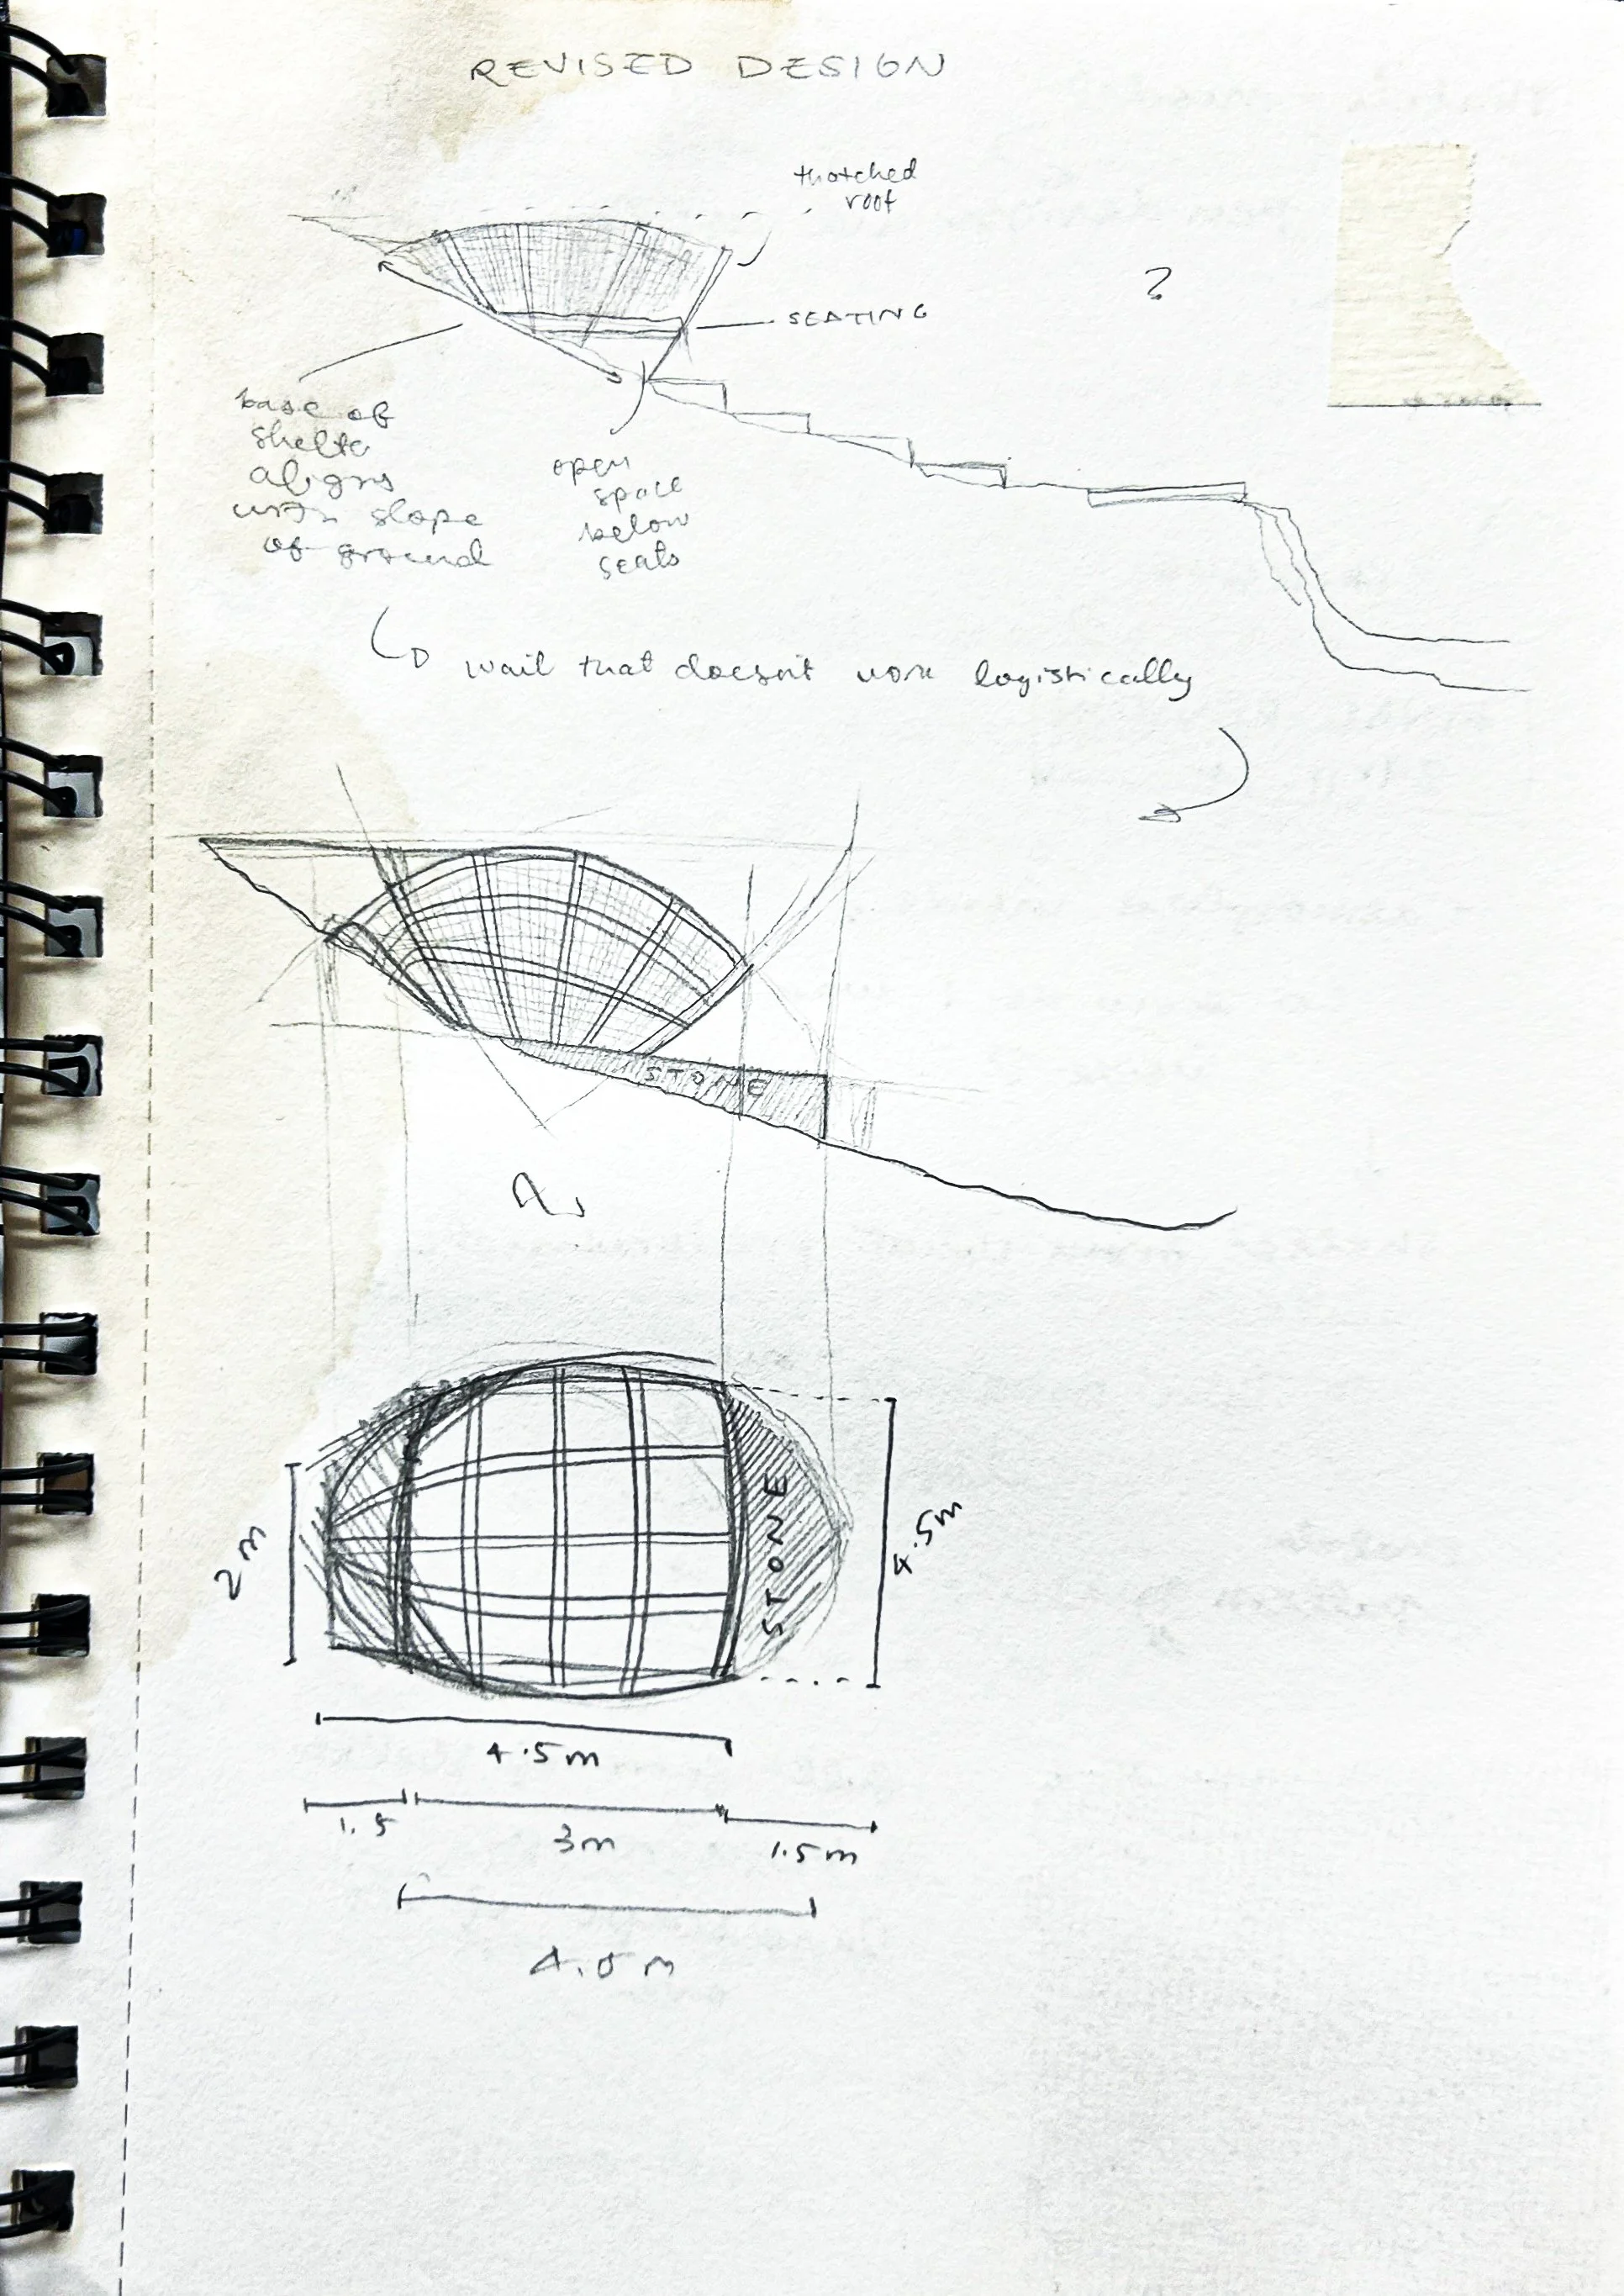 REVISED DESIGN
thatched
roof
?
SEATING
base of
shelter
aligns
with slope
of ground
open
space
below
seats
wait that doesn't work logistically
STONE
2m
STONE
4.5m
4.5m
1.5
3m
1.5m